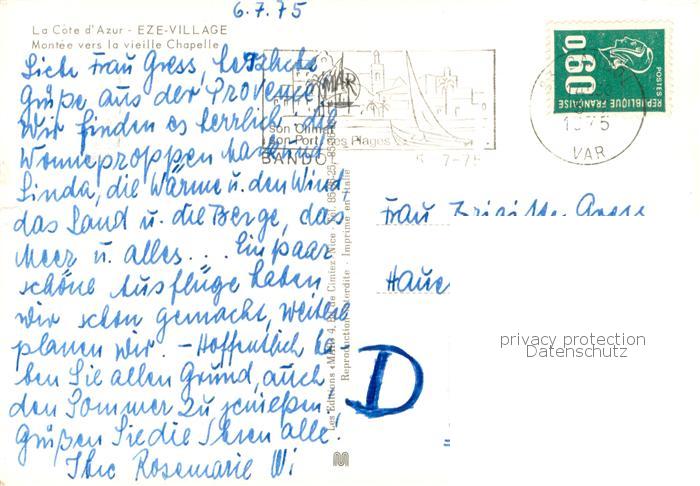 6.7.75
La Côte d'Azur - EZE-VILLAGE
Montée vers la vieille Chapelle
Liebe Frau Gress, herzliche
Grüße aus der Provence
Wir finden es herrlich, die
Wonneproppen und
Linda, die Wärme u. den Wind
das Land u. die Berge, das
Meer u. alles... Ein paar
schöne Ausflüge haben
wir schon gemacht, weitere
planen wir. - Hoffentlich ha-
ben Sie allen Grund, auch
den Sommer zu genießen.
Grüßen Sie die Ihren alle!
Ihre Rosemarie Wi
son Climat
son Port, ses Plages
BANDOL
6-7-75
Les Editions «MAR» 4, de Cimiez Nice
Reproduction interdite - Imprimé en Italie
0,60
POSTES
REPUBLIQUE FRANÇAISE
1975
VAR
Frau Brigitte Gress
D
privacy protection
Datenschutz